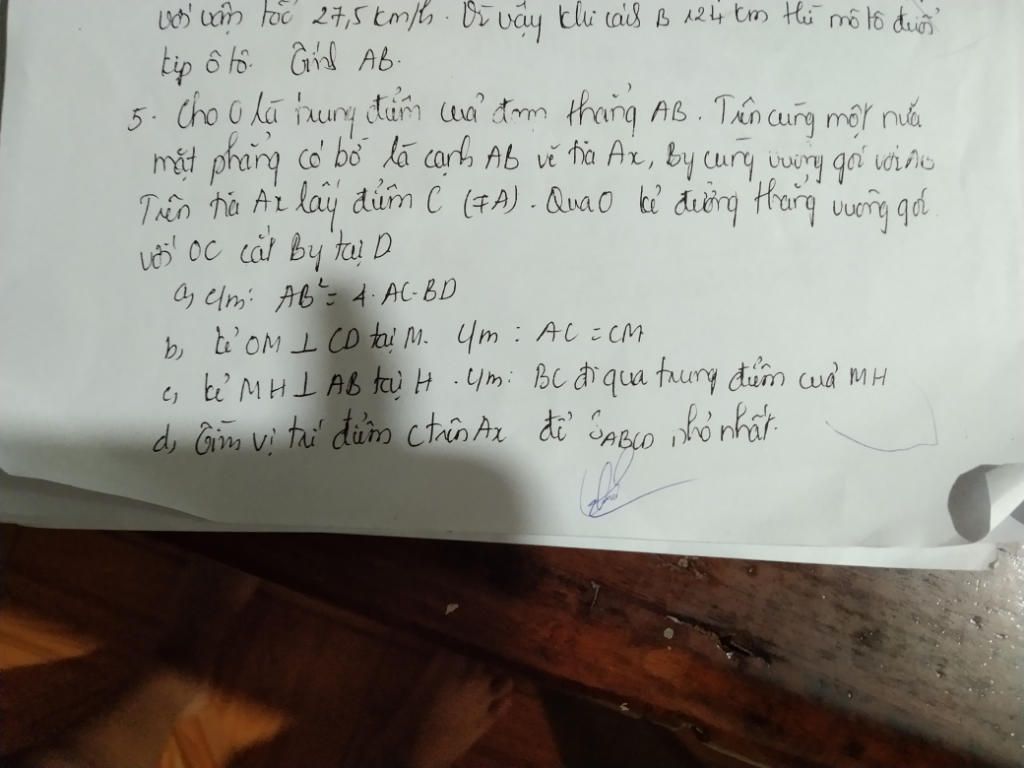 với vận tốc 27,5 km/h. Vì vậy khi cách B 124 km thì mô tô đuổi
kịp ô tô. Tính AB.
5. Cho O là trung điểm của đoạn thẳng AB. Trên cùng một nửa
mặt phẳng có bờ là cạnh AB vẽ tia Ax, By cùng vuông góc với AB
Trên tia Ax lấy điểm C (≠A). Qua O kẻ đường thẳng vuông góc
với OC cắt By tại D
a, c/m: AB² = 4. AC.BD
b, kẻ OM ⊥ CD tại M. c/m: AC = CM
c, kẻ MH ⊥ AB tại H. c/m: BC đi qua trung điểm của MH
d, Tìm vị trí điểm C trên Ax để S_ABCD nhỏ nhất.